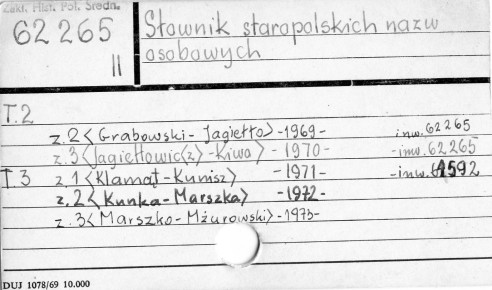 Zakł. Hist. Pol. Średn.
62 265
II
Słownik staropolskich nazw
osobowych
T.2
z.2 <Grabowski - Jagiełło> -1969- inw. 62265
z.3 <Jagiełłowic(z) - Kiwa> -1970- -inw. 62265
T.3 z.1 <Klamąt - Kunisz> -1971- -inw.
z.2 <Kunka - Marszka> -1972-
z.3 <Marszko - Mżurowski> -1973-
DUJ 1078/69 10.000